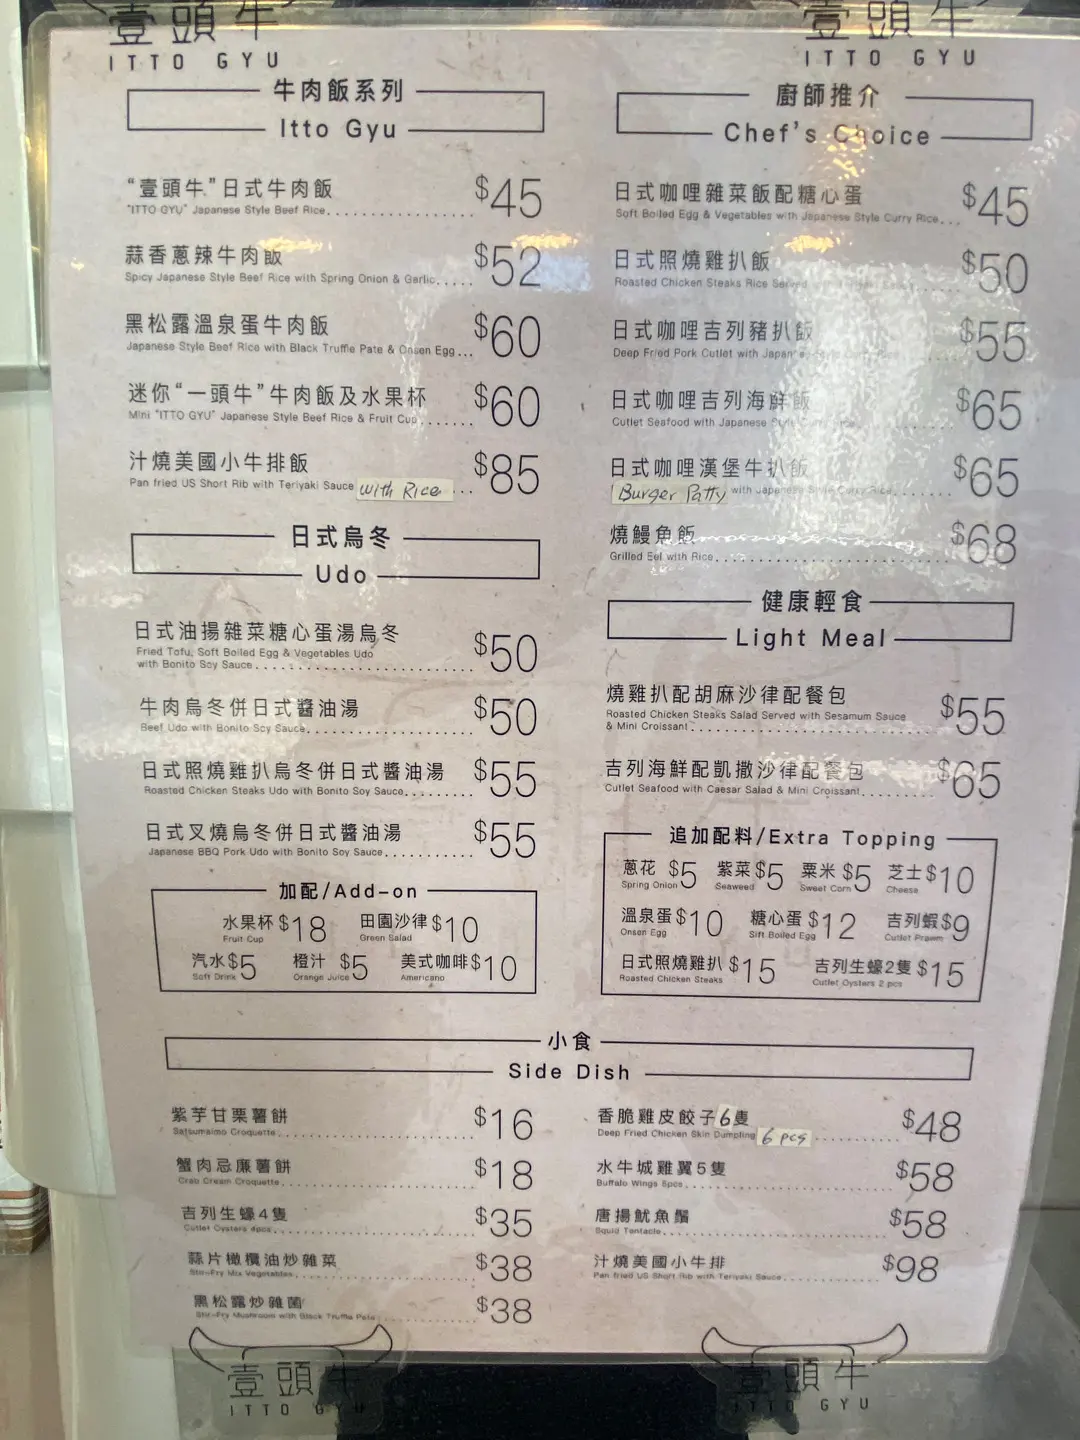 壹頭牛
ITTO GYU
壹頭牛
ITTO GYU
牛肉飯系列
Itto Gyu
“壹頭牛”日式牛肉飯 $45
"ITTO GYU" Japanese Style Beef Rice
蒜香蔥辣牛肉飯 $52
Spicy Japanese Style Beef Rice with Spring Onion & Garlic
黑松露溫泉蛋牛肉飯 $60
Japanese Style Beef Rice with Black Truffle Pate & Onsen Egg
迷你“一頭牛”牛肉飯及水果杯 $60
Mini "ITTO GYU" Japanese Style Beef Rice & Fruit Cup
汁燒美國小牛排飯 $85
Pan fried US Short Rib with Teriyaki Sauce with Rice
日式烏冬
Udo
日式油揚雜菜糖心蛋湯烏冬 $50
Fried Tofu, Soft Boiled Egg & Vegetables Udo
with Bonito Soy Sauce
牛肉烏冬併日式醬油湯 $50
Beef Udo with Bonito Soy Sauce
日式照燒雞扒烏冬併日式醬油湯 $55
Roasted Chicken Steaks Udo with Bonito Soy Sauce
日式叉燒烏冬併日式醬油湯 $55
Japanese BBQ Pork Udo with Bonito Soy Sauce
加配/Add-on
水果杯 $18 田園沙律 $10
Fruit Cup Green Salad
汽水 $5 橙汁 $5 美式咖啡 $10
Soft Drink Orange Juice Americano
廚師推介
Chef's Choice
日式咖哩雜菜飯配糖心蛋 $45
Soft Boiled Egg & Vegetables with Japanese Style Curry Rice
日式照燒雞扒飯 $50
Roasted Chicken Steaks Rice Served
日式咖哩吉列豬扒飯 $55
Deep Fried Pork Cutlet with Japanese Style Curry Rice
日式咖哩吉列海鮮飯 $65
Cutlet Seafood with Japanese Style Curry Rice
日式咖哩漢堡牛扒飯 $65
Burger Patty with Japanese Style Curry Rice
燒鰻魚飯 $68
Grilled Eel with Rice
健康輕食
Light Meal
燒雞扒配胡麻沙律配餐包 $55
Roasted Chicken Steaks Salad Served with Sesamum Sauce
& Mini Croissant
吉列海鮮配凱撒沙律配餐包 $65
Cutlet Seafood with Caesar Salad & Mini Croissant
追加配料/Extra Topping
蔥花 $5 紫菜 $5 粟米 $5 芝士 $10
Spring Onion Seaweed Sweet Corn Cheese
溫泉蛋 $10 糖心蛋 $12 吉列蝦 $9
Onsen Egg Sift Boiled Egg Cutlet Prawn
日式照燒雞扒 $15 吉列生蠔2隻 $15
Roasted Chicken Steaks Cutlet Oysters 2 pcs
小食
Side Dish
紫芋甘栗薯餅 $16
Satsumaimo Croquette
蟹肉忌廉薯餅 $18
Crab Cream Croquette
吉列生蠔4隻 $35
Cutlet Oysters 4pcs
蒜片橄欖油炒雜菜 $38
Stir-Fry Mix Vegetables
黑松露炒雜菌 $38
Stir-Fry Mushroom with Black Truffle Pate
香脆雞皮餃子6隻 $48
Deep Fried Chicken Skin Dumpling 6 pcs
水牛城雞翼5隻 $58
Buffalo Wings 5pcs
唐揚魷魚鬚 $58
Squid Tentacle
汁燒美國小牛排 $98
Pan fried US Short Rib with Teriyaki Sauce
壹頭牛
ITTO GYU
壹頭牛
ITTO GYU